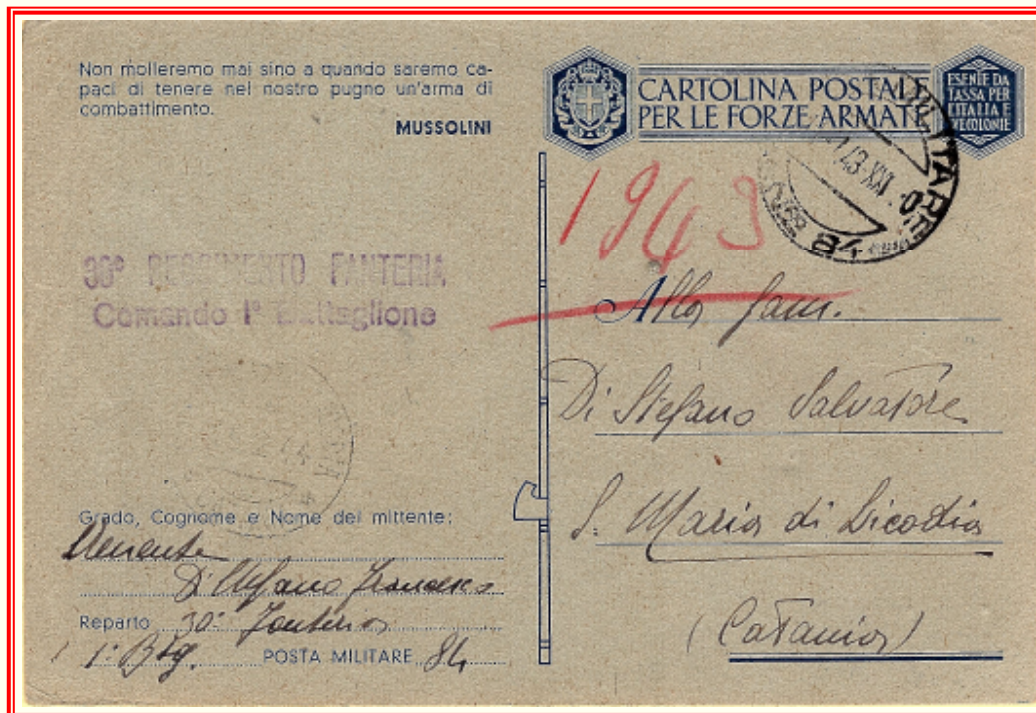 Non molleremo mai sino a quando saremo ca-
paci di tenere nel nostro pugno un'arma di
combattimento.
MUSSOLINI
CARTOLINA POSTALE
PER LE FORZE ARMATE
ESENTE DA
TASSA PER
L'ITALIA E
LE COLONIE
1943
REGGIMENTO FANTERIA
Comando I° Battaglione
Alla fam.
Di Stefano Salvatore
S. Maria di Licodia
(Catania)
Grado, Cognome e Nome del mittente:
Di Stefano Francesco
Reparto 30° Fanteria
1° Btg. POSTA MILITARE 84